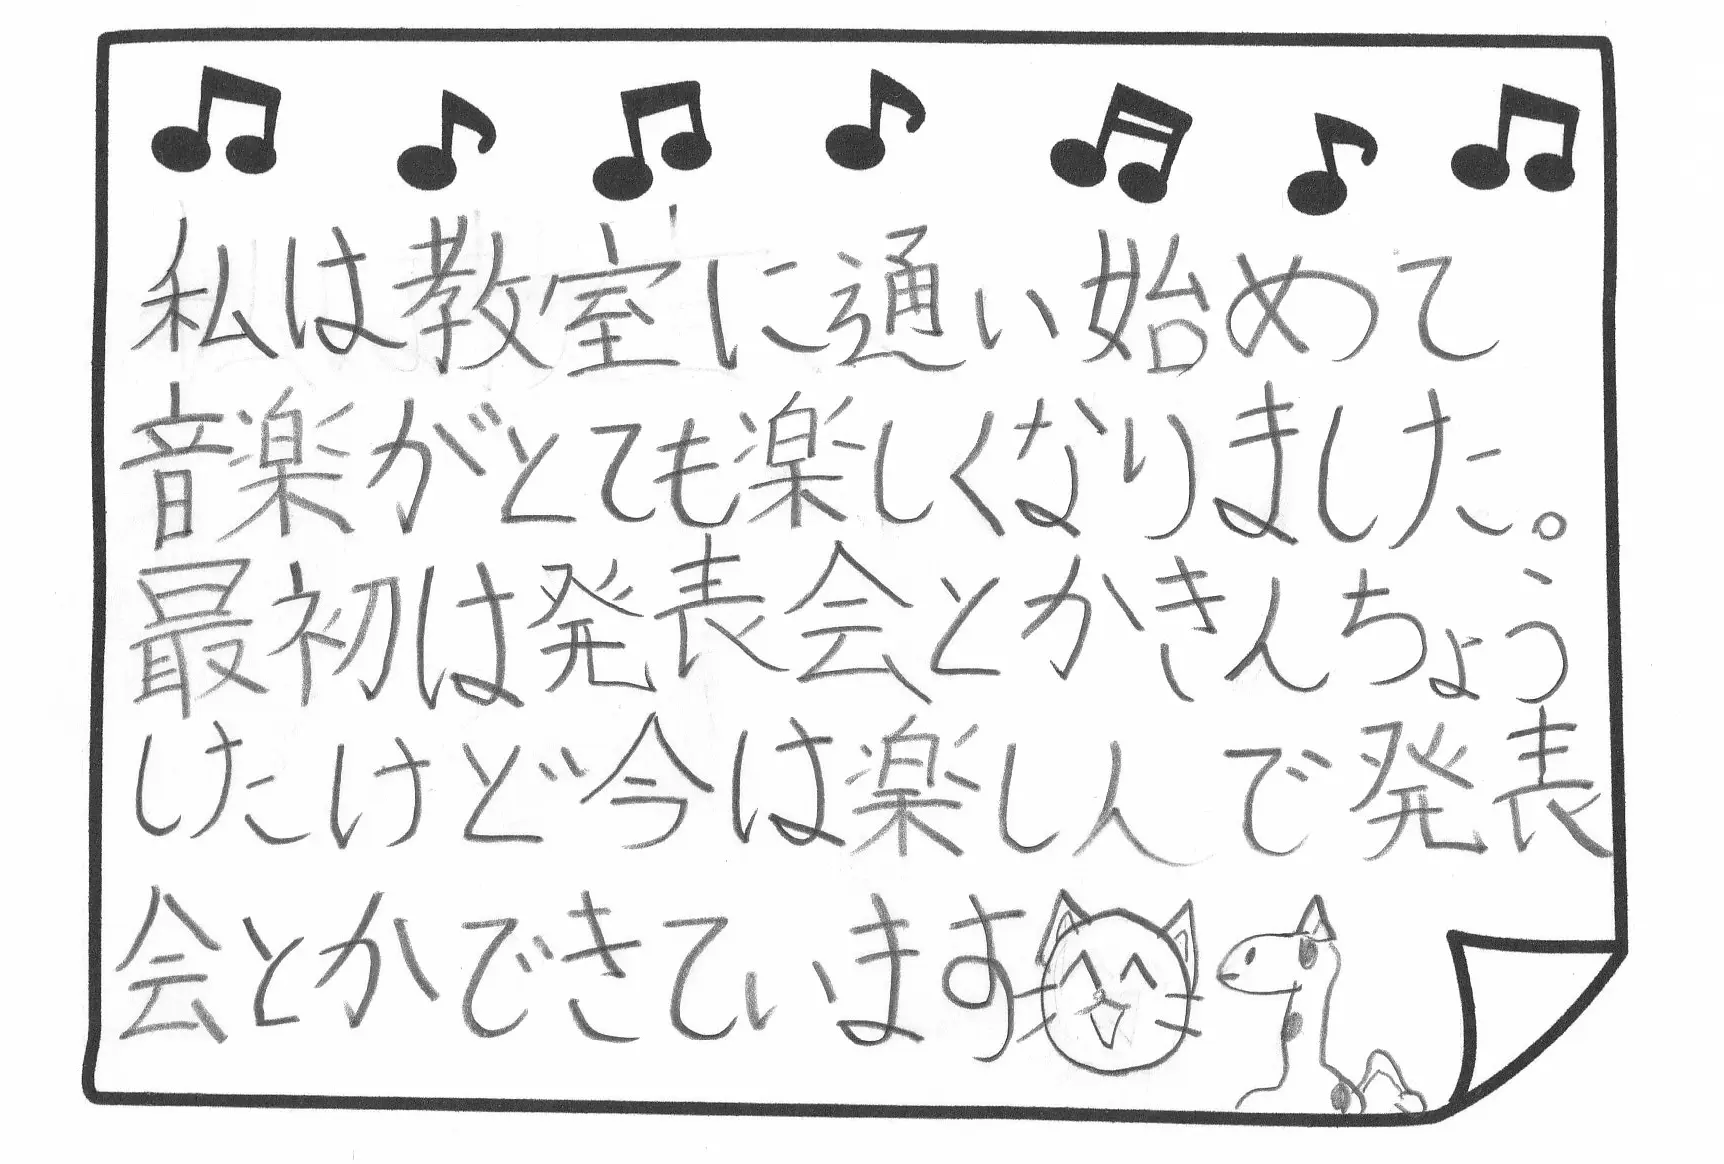 私は教室に通い始めて
音楽がとても楽しくなりました。
最初は発表会とかきんちょう
したけど今は楽しんで発表
会とかできています